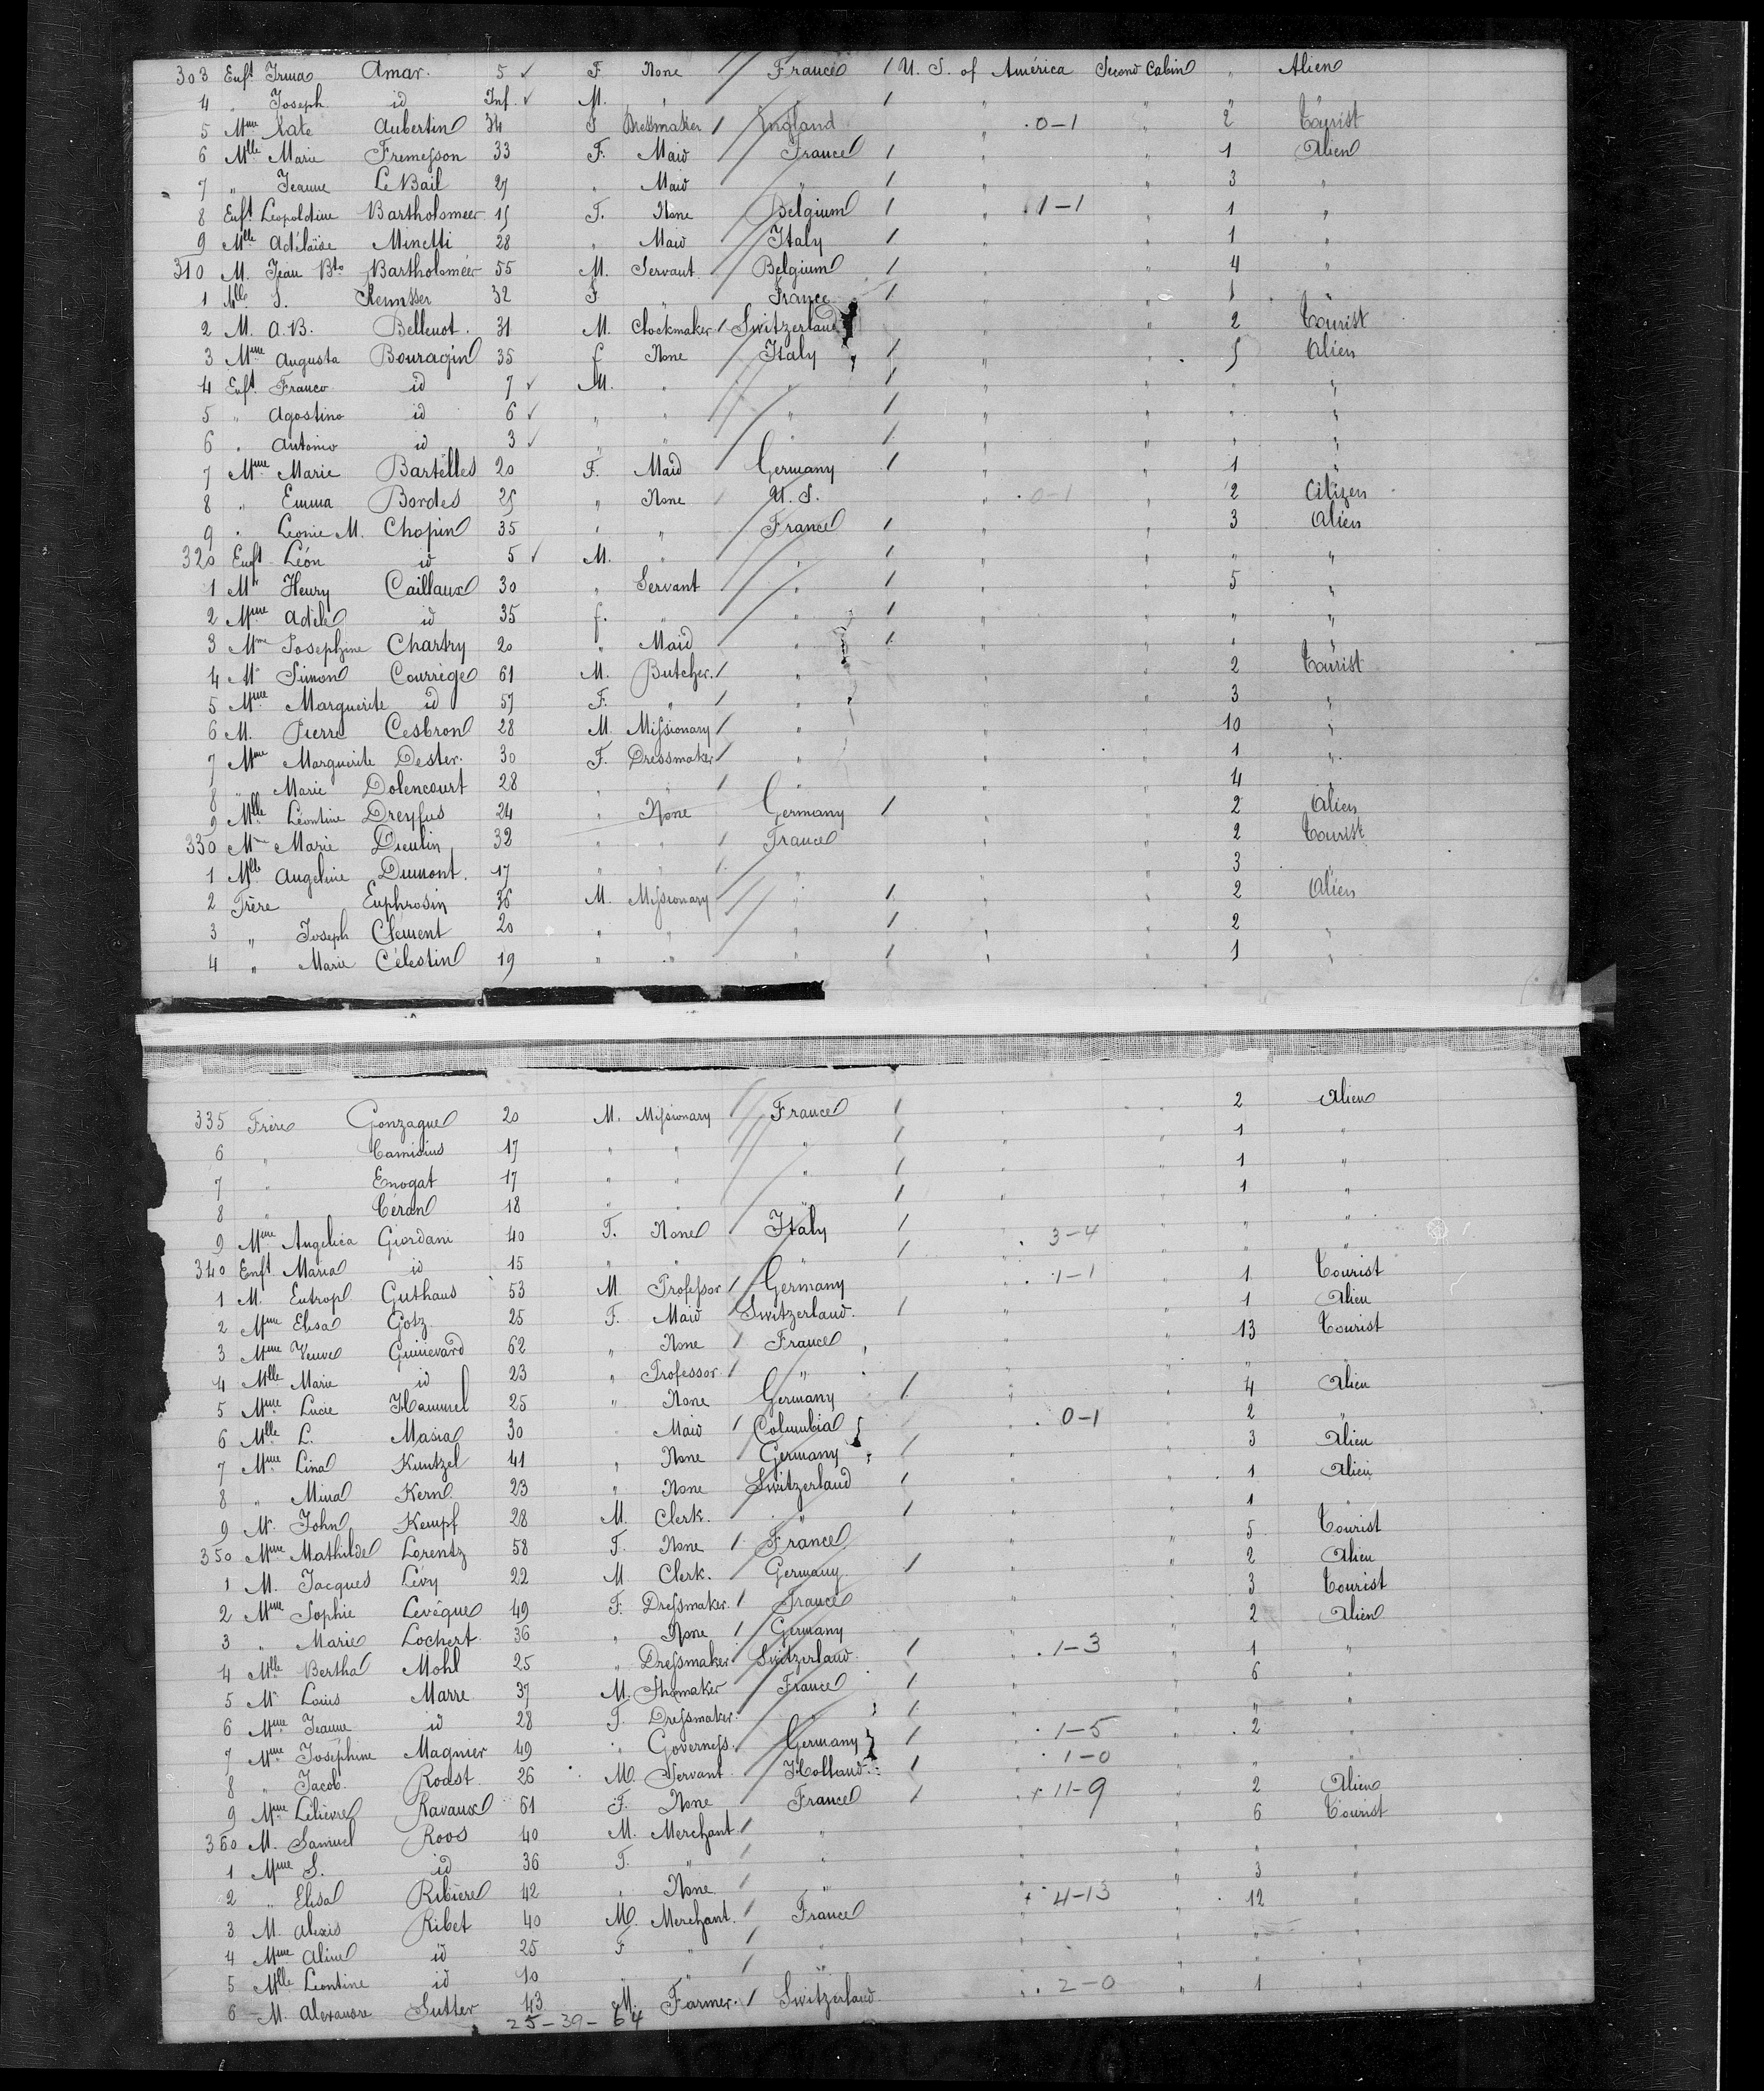 303 Enft Irma Amar. 5 ✓ F. None / France / U. S. of América Second Cabin " Alien
4 " Joseph id Inf. ✓ M. " " / " " " "
5 Mme Kate Aubertin 34 F Dressmaker / England " .0-1 " 2 Tourist
6 Mlle Marie Fremesson 33 F. Maid France / " " 1 Alien
7 " Jeanne Le Bail 27 " Maid " / " " 3 "
8 Enft Leopoldine Bartholomeer 15 F. None Belgium / " .1-1 " 1 "
9 Mlle Adélaïde Minetti 28 " Maid Italy / " " 1 "
310 M. Jean Bte Bartholomeer 55 M. Servant Belgium / " " 4 "
1 Mlle S. 32 F " France / " " 1 "
2 M. A. B. Bellenot. 31 M. Clockmaker / Switzerland " " 2 Tourist
3 Mme Augusta Bouragin 35 f None Italy / " " 5 Alien
4 Enft Franco id 7 ✓ M. " " / " " " "
5 " Agostino id 6 ✓ " " " / " " " "
6 " Antonio id 3 ✓ " " " / " " " "
7 Mme Marie Bartelles 20 F. Maid Germany / " " 1 "
8 " Emma Bordes 25 " None / U. S. " .0-1 " 2 Citizen
9 " Léonie M. Chopin 35 " " France / " " 3 Alien
320 Enft Léon id 5 ✓ M. " " / " " " "
1 Mr Henry Caillaux 30 " Servant " / " " 5 "
2 Mme Adèle id 35 f. " " / " " " "
3 Mme Josephine Chartry 20 " Maid " / " " " "
4 Mr Simon Courrège 61 M. Butcher. / " " " 2 Tourist
5 Mme Marguerite id 57 F. " / " " " 3 "
6 M. Pierre Cesbron 28 M. Missionary / " " " 10 "
7 Mme Marguerite Dester. 30 F. Dressmaker / " " " 1 "
8 " Marie Dolencourt 28 " " / " " " 4 "
9 Mlle Léontine Dreyfus 24 " None Germany / " " 2 Alien
330 Mme Marie Dieulin 32 " " / France " " 2 Tourist
1 Mlle Angeline Dumont. 17 " " / " " " 3 "
2 Frère Euphrosin 36 M. Missionary " / " " 2 Alien
3 " Joseph Clément 20 " " " / " " 2 "
4 " Marie Célestin 19 " " " / " " 1 "
335 Frère Gonzague 20 M. Missionary / France / " " 2 Alien
6 " 17 " " " / " " 1 "
7 " Enogat 17 " " " / " " 1 "
8 " Céran 18 " " " / " " 1 "
9 Mme Angelica Giordani 40 F. None Italy / .3-4 " " "
340 Enft Maria id 15 " " " / " " " "
1 M. Eutrope Guthaus 53 M Professor / Germany .1-1 " 1 Tourist
2 Mme Elisa Gotz. 25 F. Maid Switzerland. / " " 1 Alien
3 Mme Veuve Guinevard 62 " None / France " " 13 Tourist
4 Mlle Marie id 23 " Professor / " " " " "
5 Mme Lucie Hammel 25 " None Germany / " " 4 Alien
6 Mlle L. Masia 30 " Maid / Columbia .0-1 2 "
7 Mme Lina Kuntzel 41 " None Germany / " " 3 Alien
8 " Mina Kern 23 " None Switzerland / " " 1 Alien
9 Mr. John Kempf 28 M. Clerk. " / " " 1 "
350 Mme Mathilde Lorentz 58 F. None / France " " 5 Tourist
1 M. Jacques Lévy 22 M Clerk. Germany / " " 2 Alien
2 Mme Sophie Levêque 49 F. Dressmaker. / France " " 3 Tourist
3 " Marie Lochert 36 " None / Germany " " 2 Alien
4 Mlle Bertha Mohl 25 " Dressmaker Switzerland / .1-3 " 1 "
5 Mr Louis Marre 37 M. Shomaker France / " " 6 "
6 Mme Jeanne id 28 F. Dressmaker. " / " " " "
7 Mme Joséphine Magnier 49 " Governess. Germany .1-5 " 2 "
8 " Jacob. Roast 26 M. Servant Holland / .1-0 " " "
9 Mme Lelièvre Ravaux 61 F. None France / 11-9 " 2 Alien
360 M. Samuel Roos 40 M. Merchant / " " " 6 Tourist
1 Mme S. id 36 F. " / " " " " "
2 " Elisa Ribière 42 " None. / " " " 3 "
3 M. Alexis Ribet 40 M. Merchant. / France 4-13 " 12 "
4 Mme Aline id 25 F " / " " " " "
5 Mlle Léontine id 10 " " / " " " " "
6 M. Alexandre Sutter 43 M. Farmer. / Switzerland. .2-0 " 1 "
25-39-64